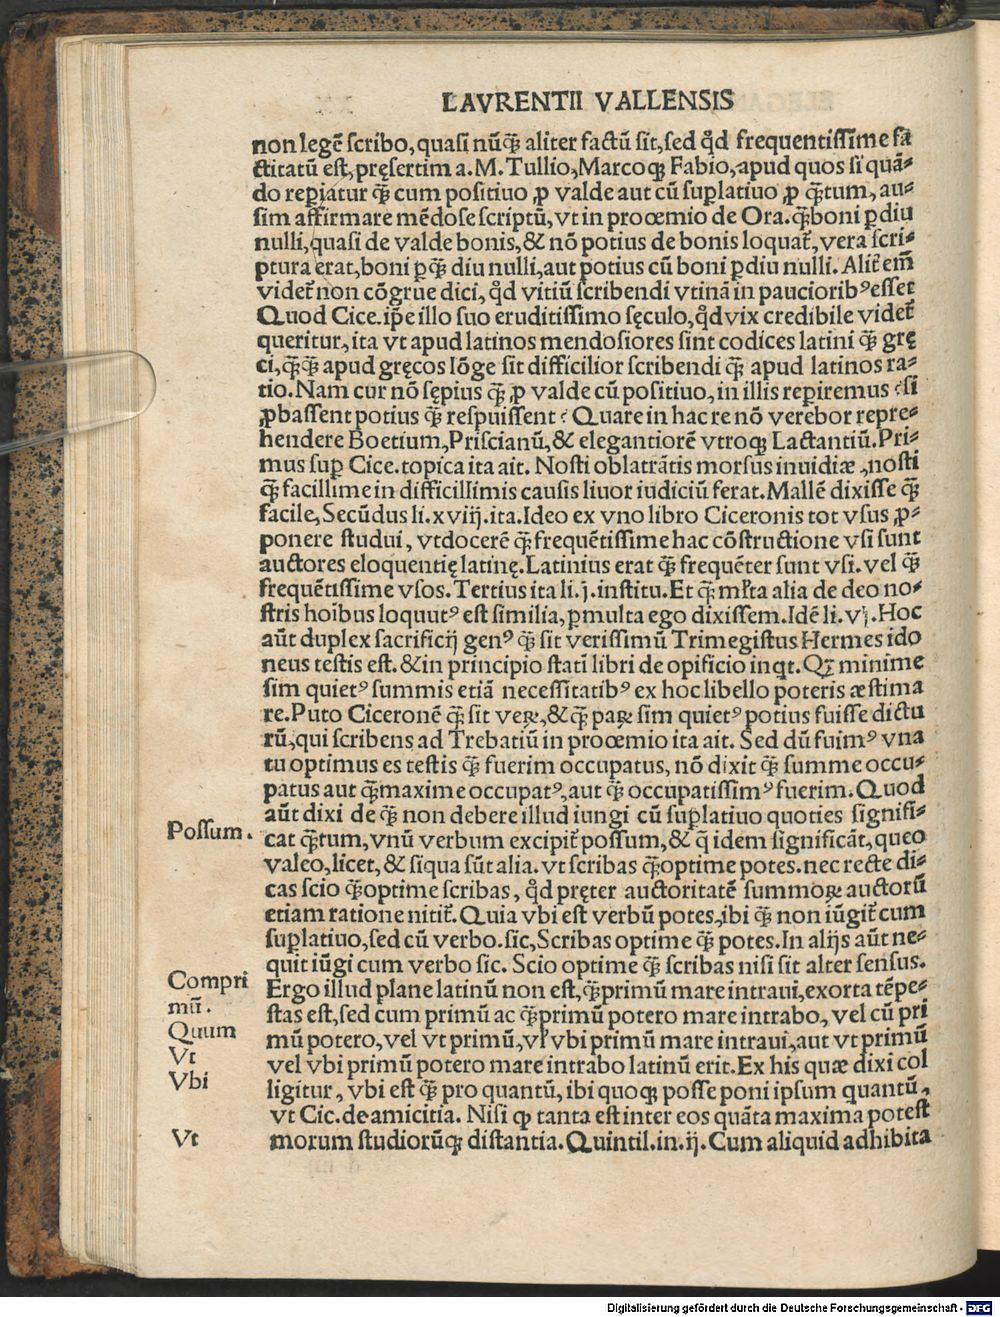 LAVRENTII VALLENSIS
non legē scribo, quasi nūq̃ aliter factū sit, sed qd̃ frequentissime fa
ctitatū est, pręsertim a. M. Tullio, Marcoqꝫ Fabio, apud quos si quā⸗
do reꝑiatur q̃ cum positiuo ꝓ valde aut cū suꝑlatiuo ꝓ q̃tum, au⸗
sim affirmare mēdose scriptū, vt in prooemio de Ora. q̃boni ꝑdiu
nulli, quasi de valde bonis, & nō potius de bonis loquat᷑, vera scri⸗
ptura erat, boni ꝑq̃ diu nulli, aut potius cū boni ꝑdiu nulli. Alit᷑ em̄
videt᷑ non cōgrue dici, qd̃ vitiū scribendi vtinā in pauciorib⁹ esset
Quod Cice. ip̄e illo suo eruditissimo sęculo, qd̃ vix credibile videt᷑
queritur, ita vt apud latinos mendosiores sint codices latini q̃ grę
ci, q̃q̃ apud gręcos lōge sit difficilior scribendi q̃ apud latinos ra⸗
tio. Nam cur nō sępius q̃ ꝓ valde cū positiuo, in illis reꝑiremus ? si
ꝓbassent potius q̃ respuissent ? Quare in hac re nō verebor repre⸗
hendere Boetium, Priscianū, & elegantiorē vtroqꝫ Lactantiū. Pri⸗
mus suꝑ Cice. topica ita ait. Nosti oblatrātis morsus inuidiæ, nosti
q̃ facillime in difficillimis causis liuor iudiciū ferat. Mallē dixisse q̃
facile, Secūdus li. xviij. ita. Ideo ex vno libro Ciceronis tot vsus ꝓ⸗
ponere studui, vtdocerē q̃ frequētissime hac cōstructione vsi sunt
auctores eloquentię latinę. Latinius erat q̃ frequēter sunt vsi. vel q̃
frequētissime vsos. Tertius ita li. j. institu. Et q̃ mr̃ta alia de deo no⸗
stris hoībus loquut⁹ est similia, ꝑmulta ego dixissem. Idē li. vj. Hoc
aūt duplex sacrificij gen⁹ q̃ sit verissimū Trimegistus Hermes ido
neus testis est. & in principio statī libri de opificio inqt. Qꝫ minime
sim quiet⁹ summis etiā necessitatib⁹ ex hoc libello poteris æstima
re. Puto Ciceronē q̃ sit veꝝ, & q̃ paꝝ sim quiet⁹ potius fuisse dictu
rū, qui scribens ad Trebatiū in prooemio ita ait. Sed dū fuim⁹ vna
tu optimus es testis q̃ fuerim occupatus, nō dixit q̃ summe occu⸗
patus aut q̃maxime occupat⁹, aut q̃ occupatissim⁹ fuerim. Quod
aūt dixi de q̃ non debere illud iungi cū suꝑlatiuo quoties signifi⸗
Possum.
cat q̃tum, vnū verbum excipit᷑ possum, & q̄ idem significāt, queo
valeo, licet, & siqua sūt alia. vt scribas q̃optime potes. nec recte di⸗
cas scio q̃optime scribas, qd̃ pręter auctoritatē summoꝝ auctorū
etiam ratione nitit᷑. Quia vbi est verbū potes, ibi q̃ non iūgit᷑ cum
suꝑlatiuo, sed cū verbo. sic, Scribas optime q̃ potes. In alijs aūt ne⸗
quit iūgi cum verbo sic. Scio optime q̃ scribas nisi sit alter sensus.
Compri
mū.
Ergo illud plane latinū non est, q̃primū mare intraui, exorta tēpe⸗
stas est, sed cum primū ac q̃primū potero mare intrabo, vel cū pri
Quum
mū potero, vel vt primū, vl̃ vbi primū mare intraui, aut vt primū
Vt
vel vbi primū potero mare intrabo latinū erit. Ex his quæ dixi col
Vbi
ligitur, vbi est q̃ pro quantū, ibi quoqꝫ posse poni ipsum quantū,
vt Cic. de amicitia. Nisi ꝙ tanta est inter eos quāta maxima potest
Vt
morum studiorūqꝫ distantia. Quintil. in. ij. Cum aliquid adhibita
Digitalisierung gefördert durch die Deutsche Forschungsgemeinschaft - DFG